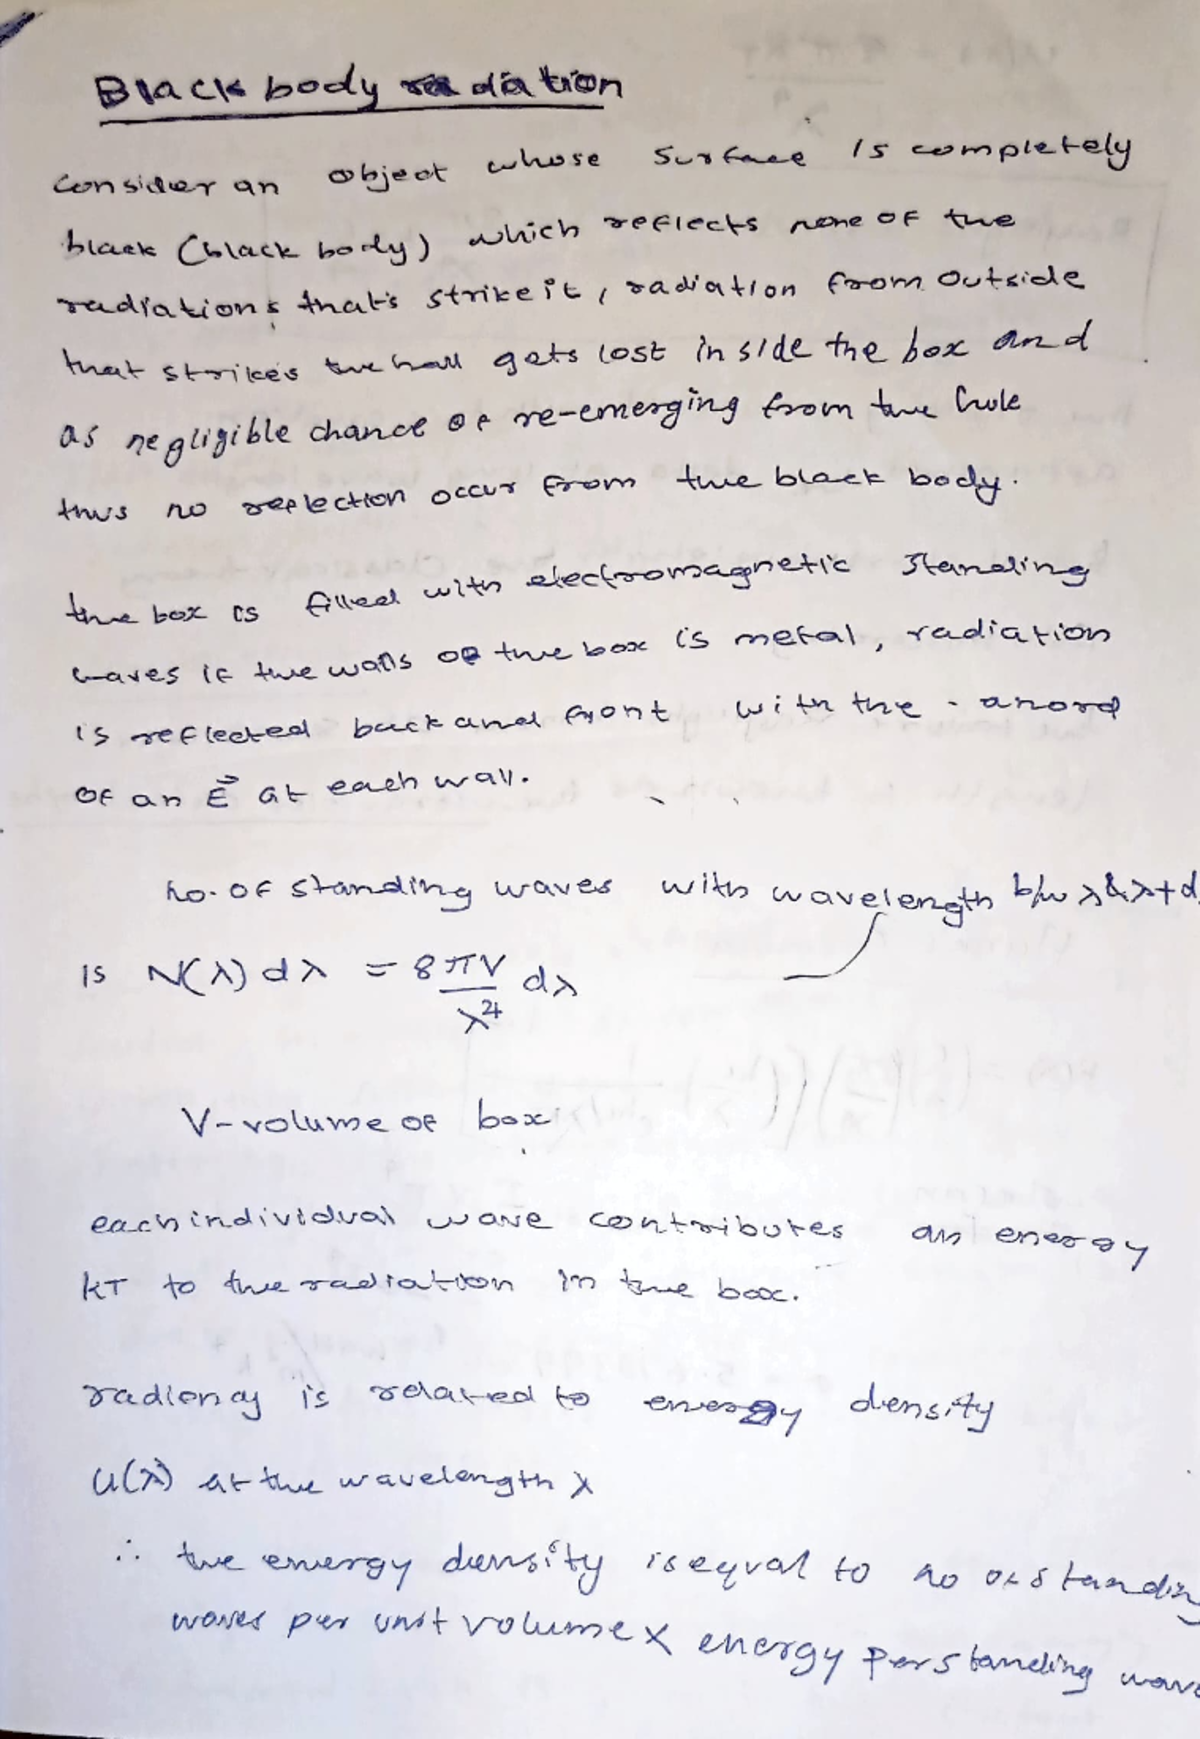 Black body radiation
consider an object whose surface is completely
black (black body) which reflects none of the
radiations that's strike it, radiation from outside
that strikes the hall gets lost inside the box and
as negligible chance of re-emerging from the hole
thus no reflection occur from the black body.
the box is filled with electromagnetic standing
waves if the walls of the box is metal, radiation
is reflected back and front with the - anord
of an E⃗ at each wall.
no. of standing waves with wavelength b/w λ & λ+d
is N(λ) dλ = 8πV/λ⁴ dλ
V-volume of box
each individual wave contributes an energy
kT to the radiation in the box.
radiency is related to energy density
U(λ) at the wavelength λ
∴ the energy density is equal to no of standing
waves per unit volume x energy per standing wave